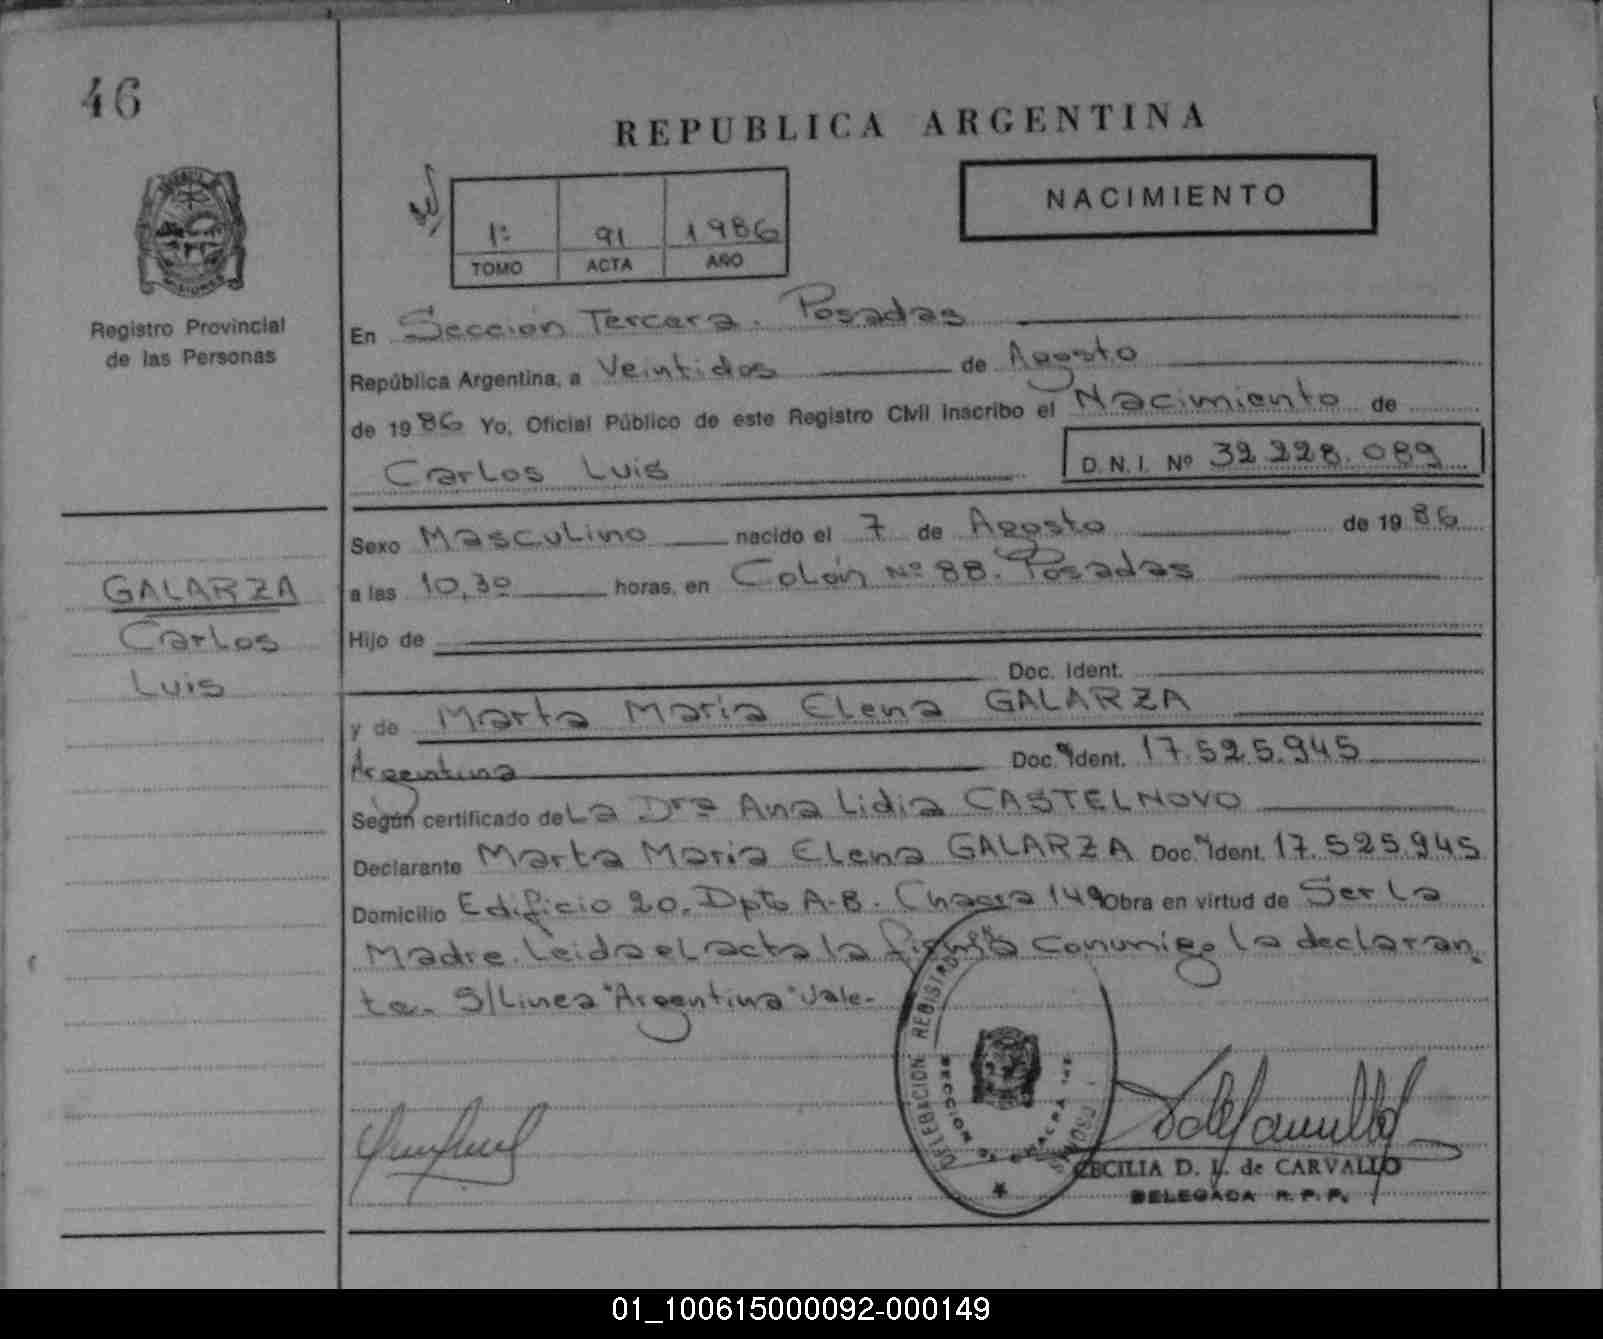 46
REPUBLICA ARGENTINA
NACIMIENTO
1º 91 1986
TOMO ACTA AÑO
Registro Provincial
de las Personas
En Sección Tercera. Posadas
República Argentina, a Veintidos de Agosto
de 1986 Yo, Oficial Público de este Registro Civil inscribo el Nacimiento de
Carlos Luis D.N.I. Nº 32.228.089
Sexo Masculino nacido el 7 de Agosto de 1986
GALARZA
Carlos
Luis
a las 10,30 horas, en Colón Nº 88. Posadas
Hijo de
Doc. Ident.
y de Marta Maria Elena GALARZA
Argentina Doc. Ident. 17.525.945
Según certificado de La Dra Ana Lidia CASTELNOVO
Declarante Marta Maria Elena GALARZA Doc. Ident. 17.525.945
Domicilio Edificio 20. Dpto A-B. Chacra 149 Obra en virtud de Ser La
Madre. Leida el acta la firma conmigo la declaran
te. S/Linea "Argentina" Vale-
DELEGACION REGISTRO
SECCION CHACRA
CECILIA D. L. de CARVALLO
DELEGADA R.P.P.
01_100615000092-000149